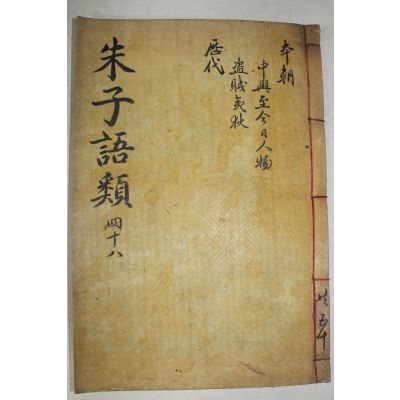 本朝
中興至今日人物
盗賊夷狄
歴代
朱子語類
四十八
共五十